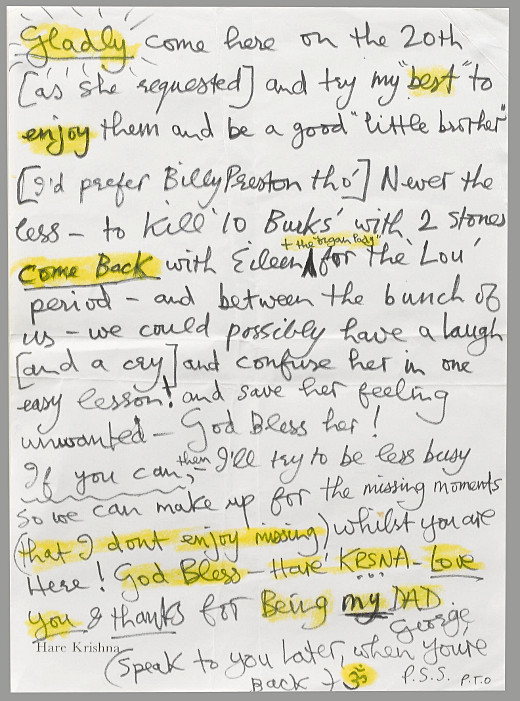 Gladly come here on the 20th
[as she requested] and try my "best" to
enjoy them and be a good "little brother"
[I'd prefer Billy Preston tho'] Never the
less - to kill '10 Burks' with 2 stones
+ the "organ lady"
come Back with Eileen for the 'Lou'
period - and between the bunch of
us - we could possibly have a laugh
[and a cry] and confuse her in one
easy lesson! and save her feeling
unwanted - God Bless her!
If you can, then I'll try to be less busy
so we can make up for the missing moments
(that I dont enjoy missing) whilst you are
Here! God Bless - Hare KRSNA - Love
you & thanks for Being my DAD
George
Hare Krishna
(Speak to you later, when you're
back + ॐ P.S.S. P.T.O